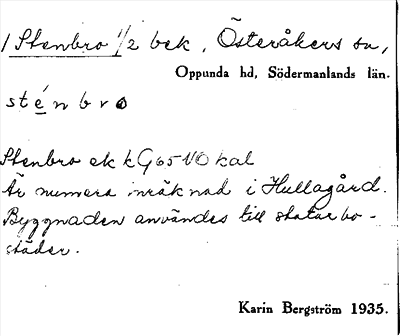 1 Stenbro 1/2 bek, Österåkers sn,
Oppunda hd, Södermanlands län.
sténbro
Stenbro ek kG65 NO kal
Är numera inräknad i Hullagård.
Byggnaden användes till statarbo-
städer.
Karin Bergström 1935.